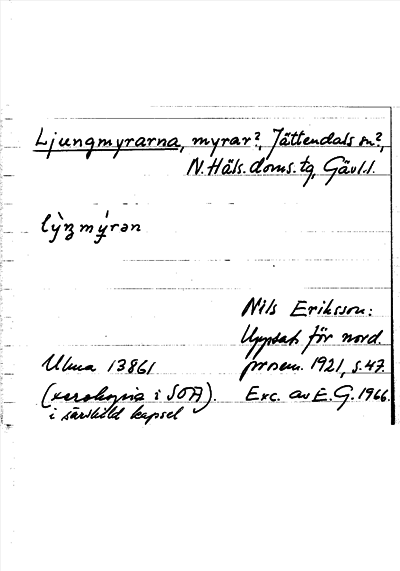 Ljungmyrarna, myrar?, Jättendals sn?,
N. Häls. doms. tg, Gävl.l.
lỳŋmýrən
Nils Eriksson:
Uppsats för nord.
prosem. 1921, s.47.
Exc. av E.G. 1966.
Ulma 13861
(xerokopia i SOA).
i särskild kapsel